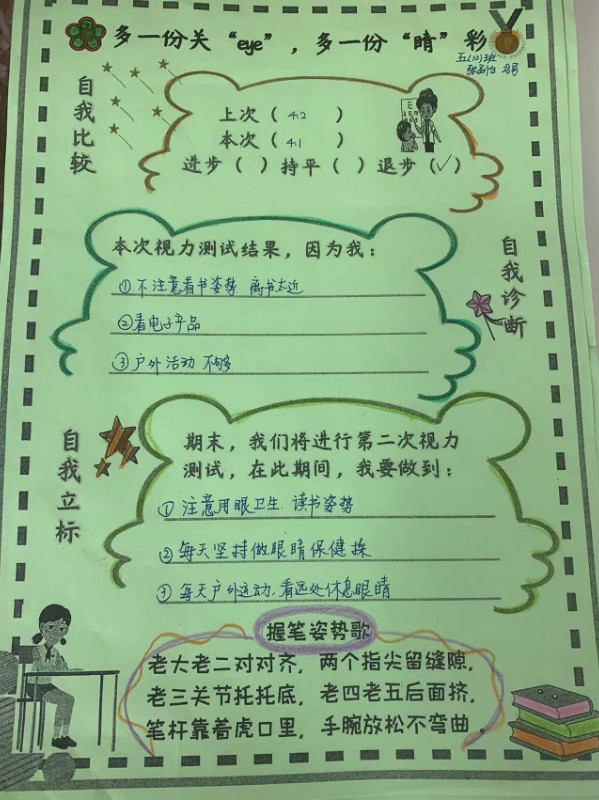 多一份关“eye”，多一份“睛”彩
五(10)班
自我比较
上次（ 4.2 ）
本次（ 4.1 ）
进步（ ）持平（ ）退步（✓）
本次视力测试结果，因为我：
①不注意看书姿势 离书太近
②看电子产品
③户外活动 不够
自我诊断
自我立标
期末，我们将进行第二次视力
测试，在此期间，我要做到：
①注意用眼卫生.读书姿势
②每天坚持做眼睛保健操
③每天户外运动.看远处休息眼睛
握笔姿势歌
老大老二对对齐，两个指尖留缝隙，
老三关节托托底，老四老五后面挤，
笔杆靠着虎口里，手腕放松不弯曲。